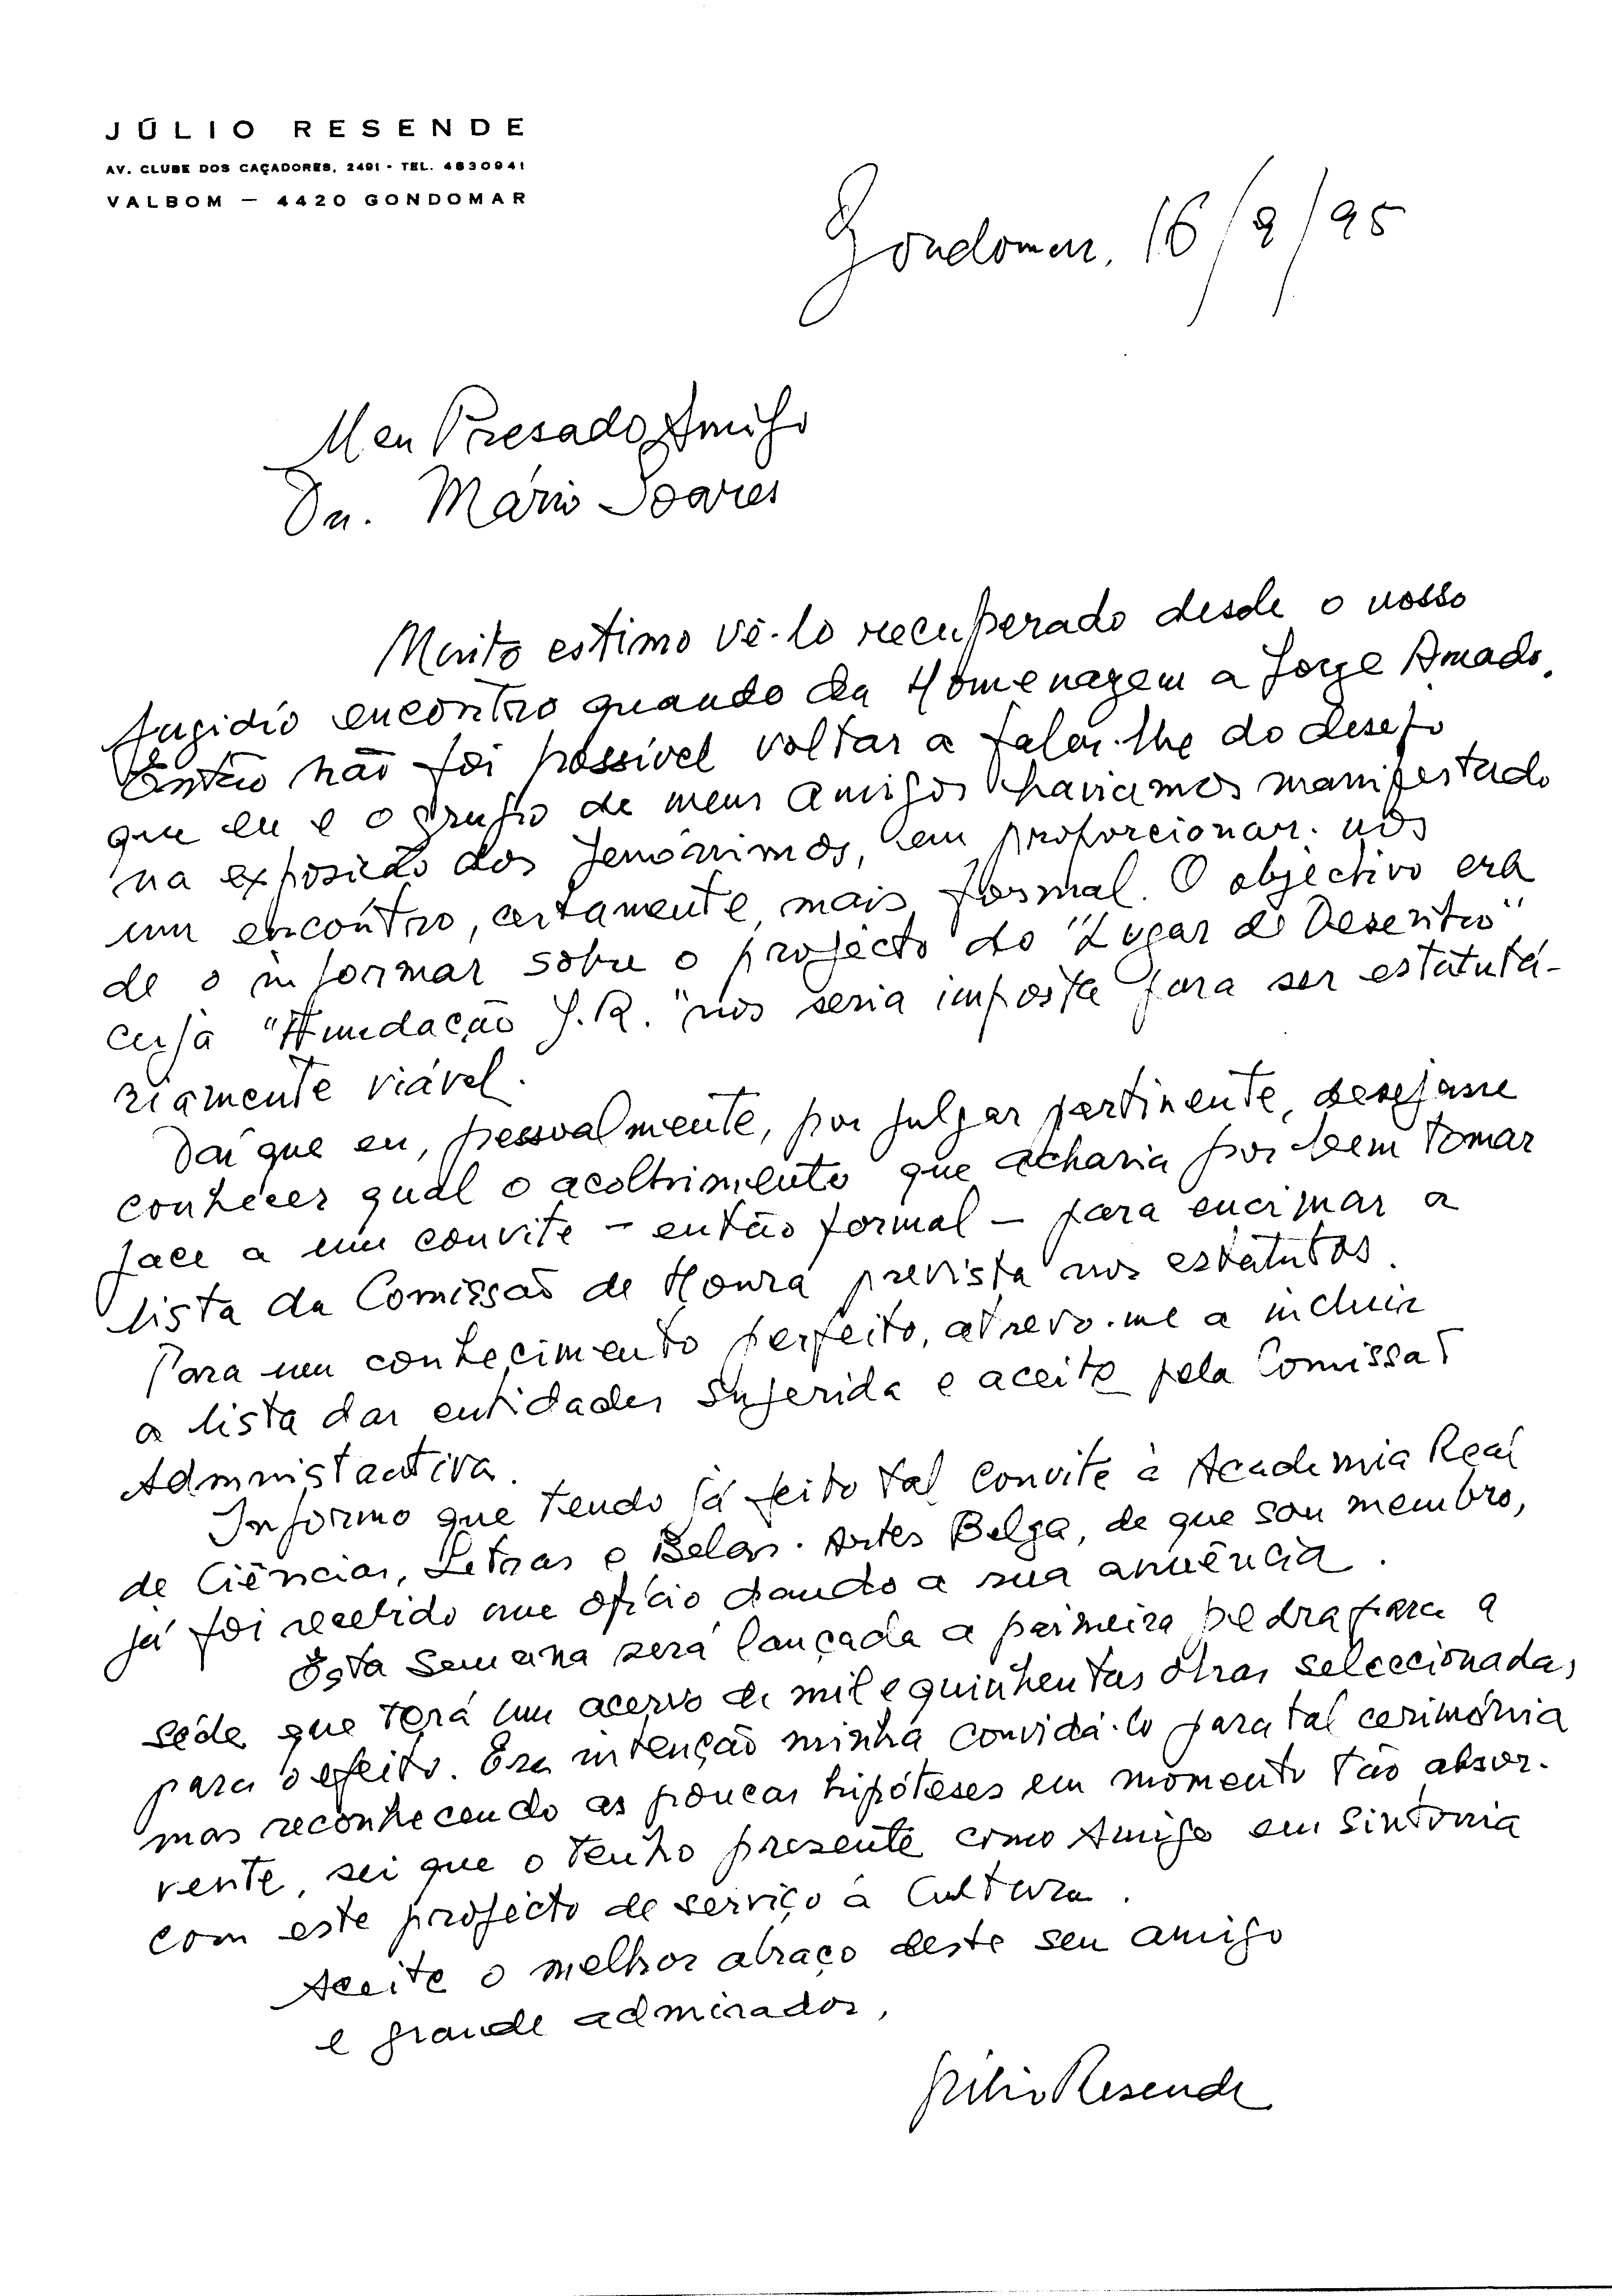 JÚLIO RESENDE
AV. CLUBE DOS CAÇADORES, 2491 - TEL. 4630941
VALBOM — 4420 GONDOMAR
Gondomar, 16/9/95
Meu Presado Amigo
Dr. Mário Soares
Muito estimo vê-lo recuperado desde o nosso
fugidio encontro quando da Homenagem a Jorge Amado.
Então não foi possível voltar a falar-lhe do desejo
que eu e o grupo de meus amigos havíamos manifestado
na exposição dos Jerónimos, em proporcionar-nos
um encontro, certamente mais formal. O objectivo era
de o informar sobre o projecto do "Lugar do Desenho"
cuja "Fundação J.R." nos seria imposta para ser estatutá-
riamente viável.
Daí que eu, pessoalmente, por julgar pertinente, desejasse
conhecer qual o acolhimento que acharia por bem tomar
face a um convite - então formal - para encimar a
lista da Comissão de Honra prevista nos estatutos.
Para um conhecimento perfeito, atrevo-me a incluir
a lista das entidades sugerida e aceite pela Comissão
Administractiva.
Informo que tendo já feito tal convite à Academia Real
de Ciências, Letras e Belas-Artes Belga, de que sou membro,
já foi recebido um ofício dando a sua anuência.
Esta semana será lançada a primeira pedra para a
séde que terá um acervo de mil e quinhentas obras seleccionadas
para o efeito. Era intenção minha convidá-lo para tal cerimónia
mas reconhecendo as poucas hipóteses em momento tão absor-
vente, sei que o tenho presente como Amigo em sintonia
com este projecto de serviço à Cultura.
Aceite o melhor abraço deste seu amigo
e grande admirador,
Júlio Resende